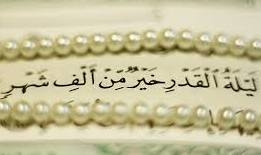 لَيْلَةُ ٱلْقَدْرِ خَيْرٌ مِّنْ أَلْفِ شَهْرٍ